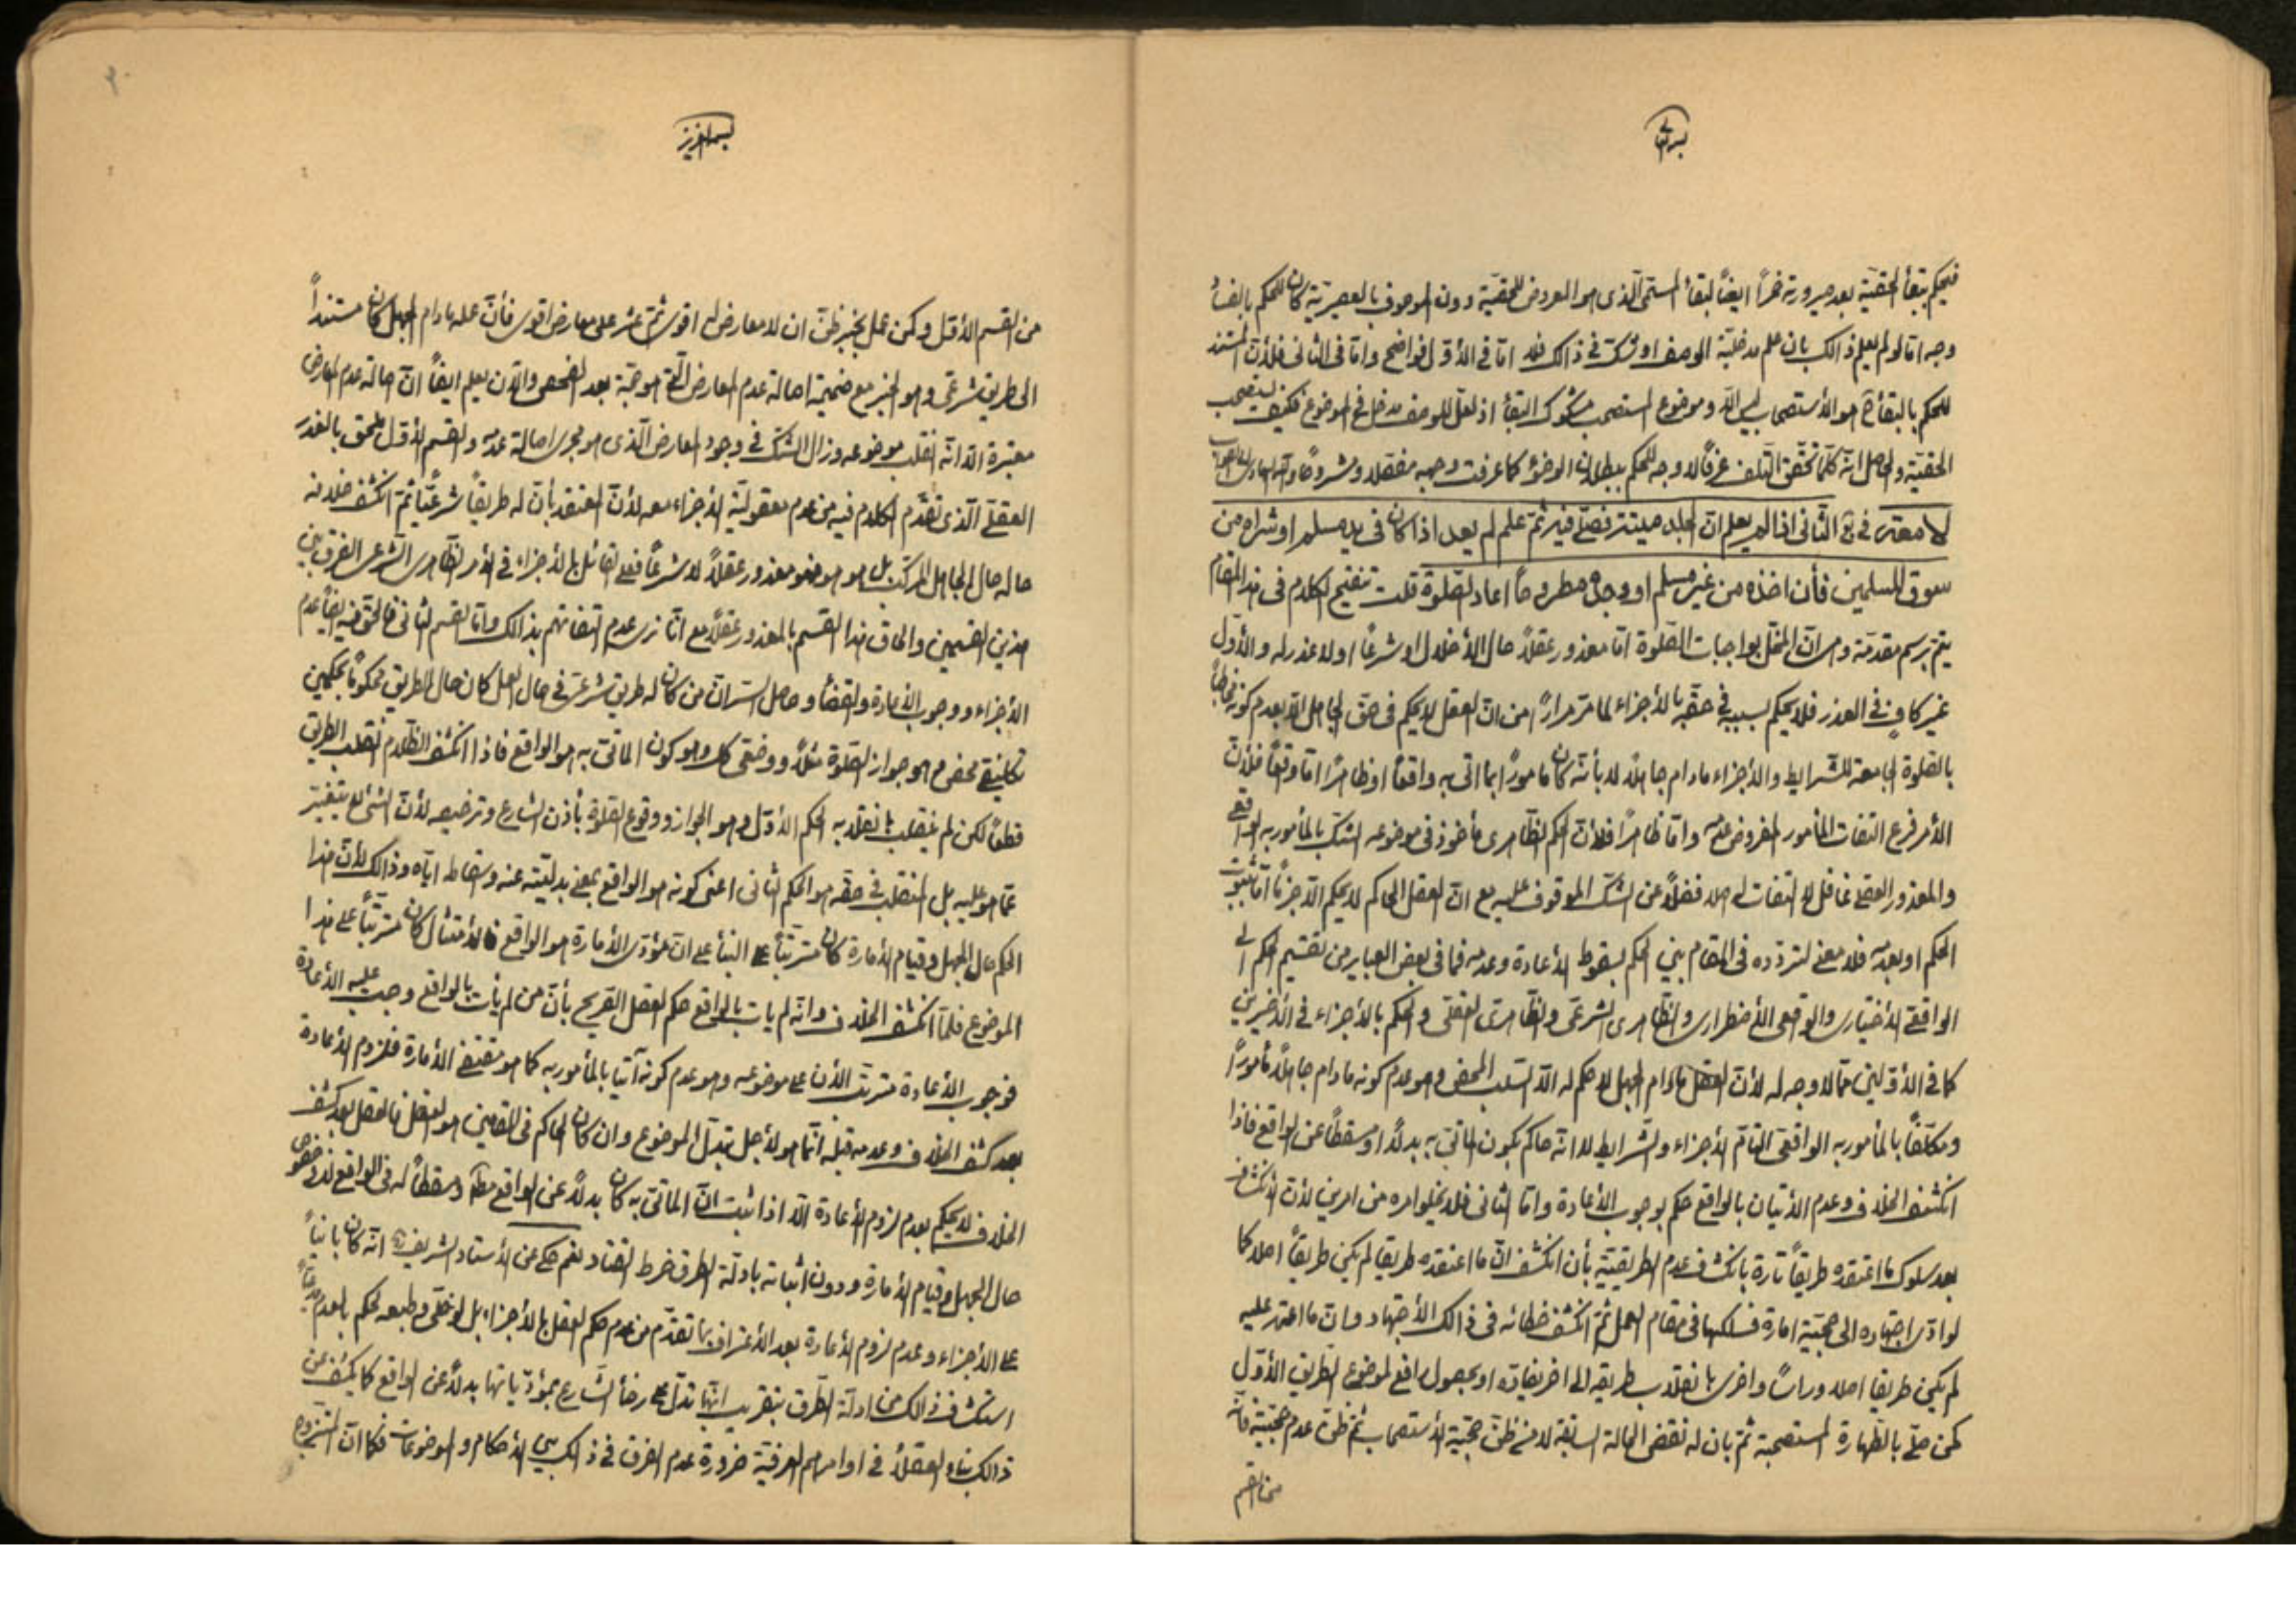 بسمه تعالى
فيحكم ببقاء الحقيّة بعد صيرورته خمراً ايضاً لبقاء المستمى الّذى هو المعروض للحقيّة دون الموصوف بالعصيريّة كان للحكم بالضمان
وجه امّا لو لم يعلم ذالك بان علم مدخليّة الوصف او شكّ فى ذالك فلا امّا فى الأوّل فواضح وامّا فى الثانى فلأنّ المستند
للحكم بالبقاء ح هو الأستصحاب ليس الّا وموضوع المستصحب مشكوك البقاء اذ لعلّ للوصف مدخل فى الموضوع فكيف يستصحب
الحقيّة والحاصل انّه كلّما تحقّق التلف عرفاً لا وجه للحكم ببطلان الوضوء كما عرفت وجهه مفصّلا ومشروحاً
فى الثّانى اذا لم يعلم انّ الجلد ميتتر فصلّى فيه ثمّ علم لم يعد اذا كان فى يد مسلم او شراه من
سوق المسلمين فأن اخذه من غير مسلم او وجده مطروحاً اعاد الصّلوة قلت تنقيح الكلام فى هذا المقام
يتمّ برسم مقدّمة وهى انّ المخلّ بواجبات الصّلوة امّا معذور عقلاً حال الأخلال او شرعاً او لا عذر له والأوّل
غير كاف فى العذر فلا يحكم بسببه فى حقّه بالأجزاء لما مرّ مراراً من انّ العقل لا يحكم فى حقّ الجاهل الّا بعدم كونه مخاطباً
بالصّلوة الجامعة للشّرايط والأجزاء مادام جاهلاً لا بأنّه كان مأموراً بما اتى به واقعاً او ظاهراً امّا واقعاً فلأنّ
الأمر فرع التفات المأمور المفروض عدمه وامّا ظاهراً فلأنّ الحكم الظّاهرى مأخوذ فى موضوعه الشّكّ بالمأمور به الواقعى
والمعذور العقلى غافل لا التفات له اصلا فضلاً عن الشّكّ الموقوف عليه مع انّ العقل الحاكم لا يحكم الّا جزماً امّا بثبوت
الحكم او بعدمه فلا معنى لتردّده فى المقام بين الحكم بسقوط الأعادة وعدمه فما فى بعض العباير من تقسيم الحكم الى
الواقعى الأختيارى والواقعى الأضطرارى والظّاهرى الشّرعى والظّاهرى العقلى والحكم بالأجزاء فى الأخيرين
كما فى الأوّلين ممّا لا وجه له لأنّ العقل مادام الجهل لا حكم له الّا السّلب المحض وهو عدم كونه مادام جاهلاً مأموراً
ومكلّفاً بالمأمور به الواقعى التّامّ الأجزاء والشّرايط لا انّه حاكم بكون المأتىّ به بدلاً او مسقطاً عن الواقع فاذا
انكشف الخلاف وعدم الأتيان بالواقع حكم بوجوب الأعادة وامّا الثانى فلا يخلو امره من امرين لأنّ الأنكشاف
بعد سلوك ما اعتقده طريقاً تارة بانكشاف عدم الطريقيّة بأن انكشف انّ ما اعتقده طريقا لم يكن طريقاً اصلا كما
لو ادّى اجتهاده الى حجّيّة امارة فسلكها فى مقام العمل ثمّ انكشف خطائه فى ذالك الأجتهاد وانّ ما اعتمد عليه
لم يكن طريقا اصلا وراساً واخرى بانقلاب طريقه الى اخر يضادّه او بحصول رافع لموضوع الطّريق الأوّل
كمن صلّى بالطّهارة المستصحبة ثمّ بان له نقض الحالة السابقة لا من ظنّ حجّيّة الأستصحاب ثمّ ظنّ عدم حجّيّته فانّه
من القسم
بسمه العزيز
من القسم الأوّل وكمن عمل بخبر ظنّ ان لا معارض له اقوى ثمّ عثر على معارض اقوى فأنّ عمله مادام الجهل كان مستنداً
الى طريق شرعىّ وهو الخبر مع ضميمة اصالة عدم المعارض الّتى هو حجّة بعد الفحص والأن يعلم ايضاً انّ اصالة عدم المعارض
معتبرة الّا انّه انقلب موضوعه وزال الشّكّ فى وجود المعارض الّذى هو مجرى اصالة عدمه والقسم الأوّل ملحق بالعذر
العقلى الّذى تقدّم الكلام فيه من عدم معقوليّة الأجزاء معه لأنّ المعتقد بأنّ له طريقاً شرعيّا ثمّ انكشف خلافه
حاله حال الجاهل المركّب بل هو هو فهو معذور عقلاً لا شرعاً فعلى القائل بالأجزاء فى الأمر الظّاهرى الشّرعى الفرق بين
هذين القسمين والحاق هذا القسم بالمعذور عقلاً مع انّا نرى عدم التفاتهم بذالك وامّا القسم الثانى فالحقّ فيه ايضاً عدم
الأجزاء ووجوب الأعادة والقضاء وحاصل السّر انّ من كان له طريق شرعىّ فى حال العمل كان حال الطريق محكوماً بحكمين
تكليفىّ محض وهو جواز الصّلوة مثلاً ووضعى كك وهو كون المأتىّ به هو الواقع فاذا انكشف الظّلام انقلب الطريق
قطعاً لكن لم ينقلب بانقلابه الحكم الأوّل وهو الجواز ووقوع الصّلوة بأذن الشارع وترخيصه لأنّ الشئ لا يتغيّر
عمّا هو عليه بل المنقلب فى حقّه هو الحكم الثانى اعنى كونه هو الواقع بمعنى بدليّته عنه واسقاطه ايّاه وذالك لأنّ هذا
الحكم حال الجهل وقيام الأمارة كان مترتّباً على البناء على انّ مؤدّى الأمارة هو الواقع فالأمتثال كان مترتّباً على هذا
الموضوع فلمّا انكشف الخلاف وانّه لم يات بالواقع حكم العقل الصّريح بأنّ من لم يأت بالواقع وجب عليه الأعادة
فوجوب الأعادة مترتّب الأن على موضوعه وهو عدم كونه آتيا بالمأمور به كما هو مقتضى الأمارة فلزوم الأعادة
بعد كشف الخلاف وعدمه قبله انّما هو لأجل تبدّل الموضوع وان كان الحاكم فى المقامين هو العقل فالعقل بعد كشف
الخلاف لا يحكم بعدم لزوم الأعادة الّا اذا ثبت انّ المأتىّ به كان بدلاً عن الواقع مطلقا ومسقطاً له فى الواقع لا فى خصوص
حال الجهل وقيام الأمارة ودون اثباته بادلّة الطرق خرط القتاد نعم حكى عن الأستاد الشريف انّه كان بانياً
على الأجزاء وعدم لزوم الأعادة بعد الأعتراف بما تقدّم من عدم حكم العقل بالأجزاء بل لو خلّى وطبعه لحكم بالعدم
استكشف ذالك من ادلّة الطّرق بتقريب انّها تدلّ على رضاء الشّارع بمؤدّياتها بدلاً عن الواقع كما يكشف عن
ذالك بناء العقلاء فى اوامرهم العرفيّة ضرورة عدم الفرق فى ذالك بين الأحكام والموضوعات فكما انّ